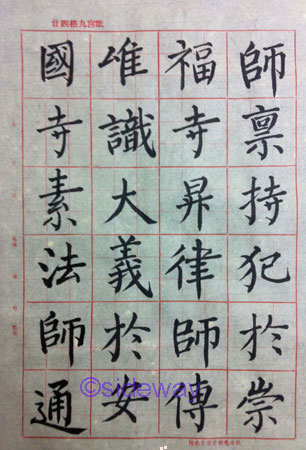 歐宮九格四廿
師禀持犯於崇
福寺昇律師傳
唯識大義於安
國寺素法師通
©sideway